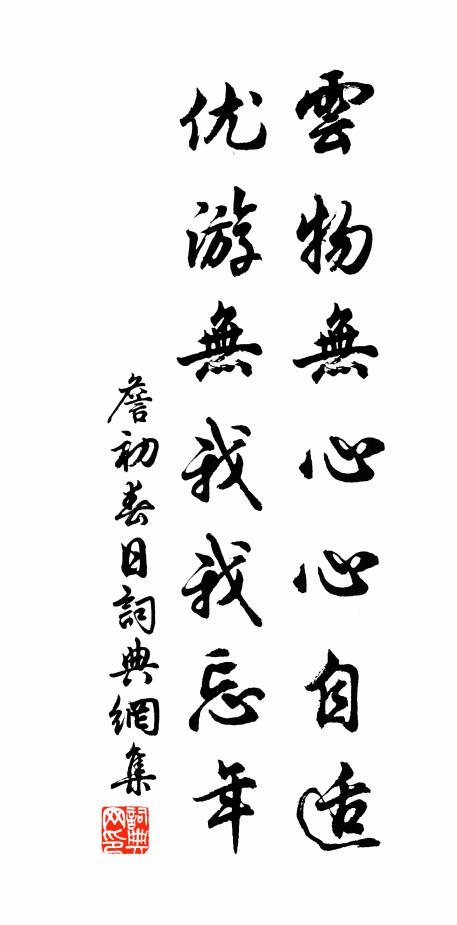 雲物無心心自适
优游無我我忘年
詹初春日詞典網集
詞典网印